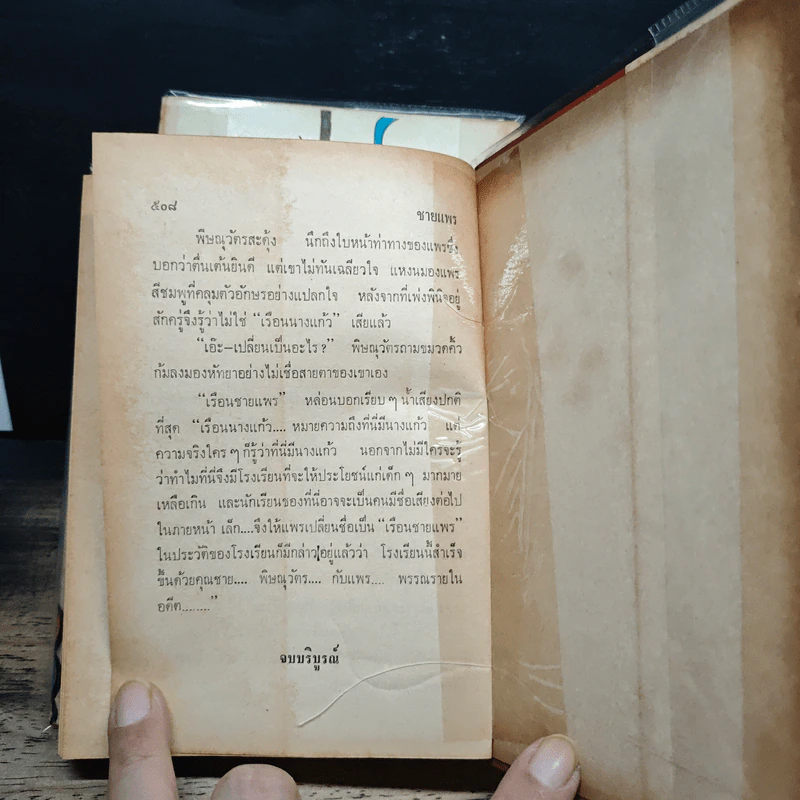 ๕๐๘
ชายแพร
พิษณุวัตรสะดุ้ง นึกถึงใบหน้าท่าทางของแพรซึ่ง
บอกว่าตื่นเต้นยินดี แต่เขาไม่ทันเฉลียวใจ แหงนมองแพร
สีชมพูที่คลุมตัวอักษรอย่างแปลกใจ หลังจากที่เพ่งพินิจอยู่
สักครู่จึงรู้ว่าไม่ใช่ “เรือนนางแก้ว” เสียแล้ว
“เอ๊ะ—เปลี่ยนเป็นอะไร ?” พิษณุวัตรถามขมวดคิ้ว
ก้มลงมองหัทยาอย่างไม่เชื่อสายตาของเขาเอง
“เรือนชายแพร” หล่อนบอกเรียบ ๆ น้ำเสียงปกติ
ที่สุด “เรือนนางแก้ว.... หมายความถึงที่นี่มีนางแก้ว แต่
ความจริงใคร ๆ ก็รู้ว่าที่นี่มีนางแก้ว นอกจากไม่มีใครจะรู้
ว่าทำไมที่นี่จึงมีโรงเรียนที่จะให้ประโยชน์แก่เด็ก ๆ มากมาย
เหลือเกิน และนักเรียนของที่นี่อาจจะเป็นคนมีชื่อเสียงต่อไป
ในภายหน้า เล็ก....จึงให้แพรเปลี่ยนชื่อเป็น “เรือนชายแพร”
ในประวัติของโรงเรียนก็มีกล่าวอยู่แล้วว่า โรงเรียนนี้สำเร็จ
ขึ้นด้วยคุณชาย.... พิษณุวัตร.... กับแพร.... พรรณรายใน
อดีต........”
จบบริบูรณ์